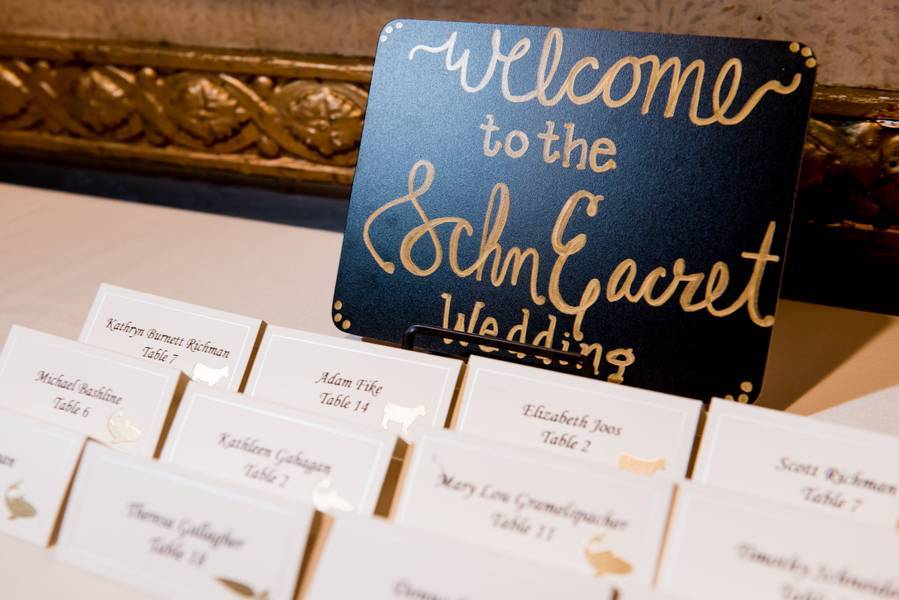 Welcome
to the
SchnEacret
Wedding
Kathryn Burnett Richman
Table 7
Adam Fike
Table 14
Elizabeth Joos
Table 2
Scott Richman
Table 7
Michael Bashline
Table 6
Kathleen Gahagan
Table 2
Mary Lou Gramelspacher
Table 11
Timothy Schneider
Theresa Gallagher
Table 18